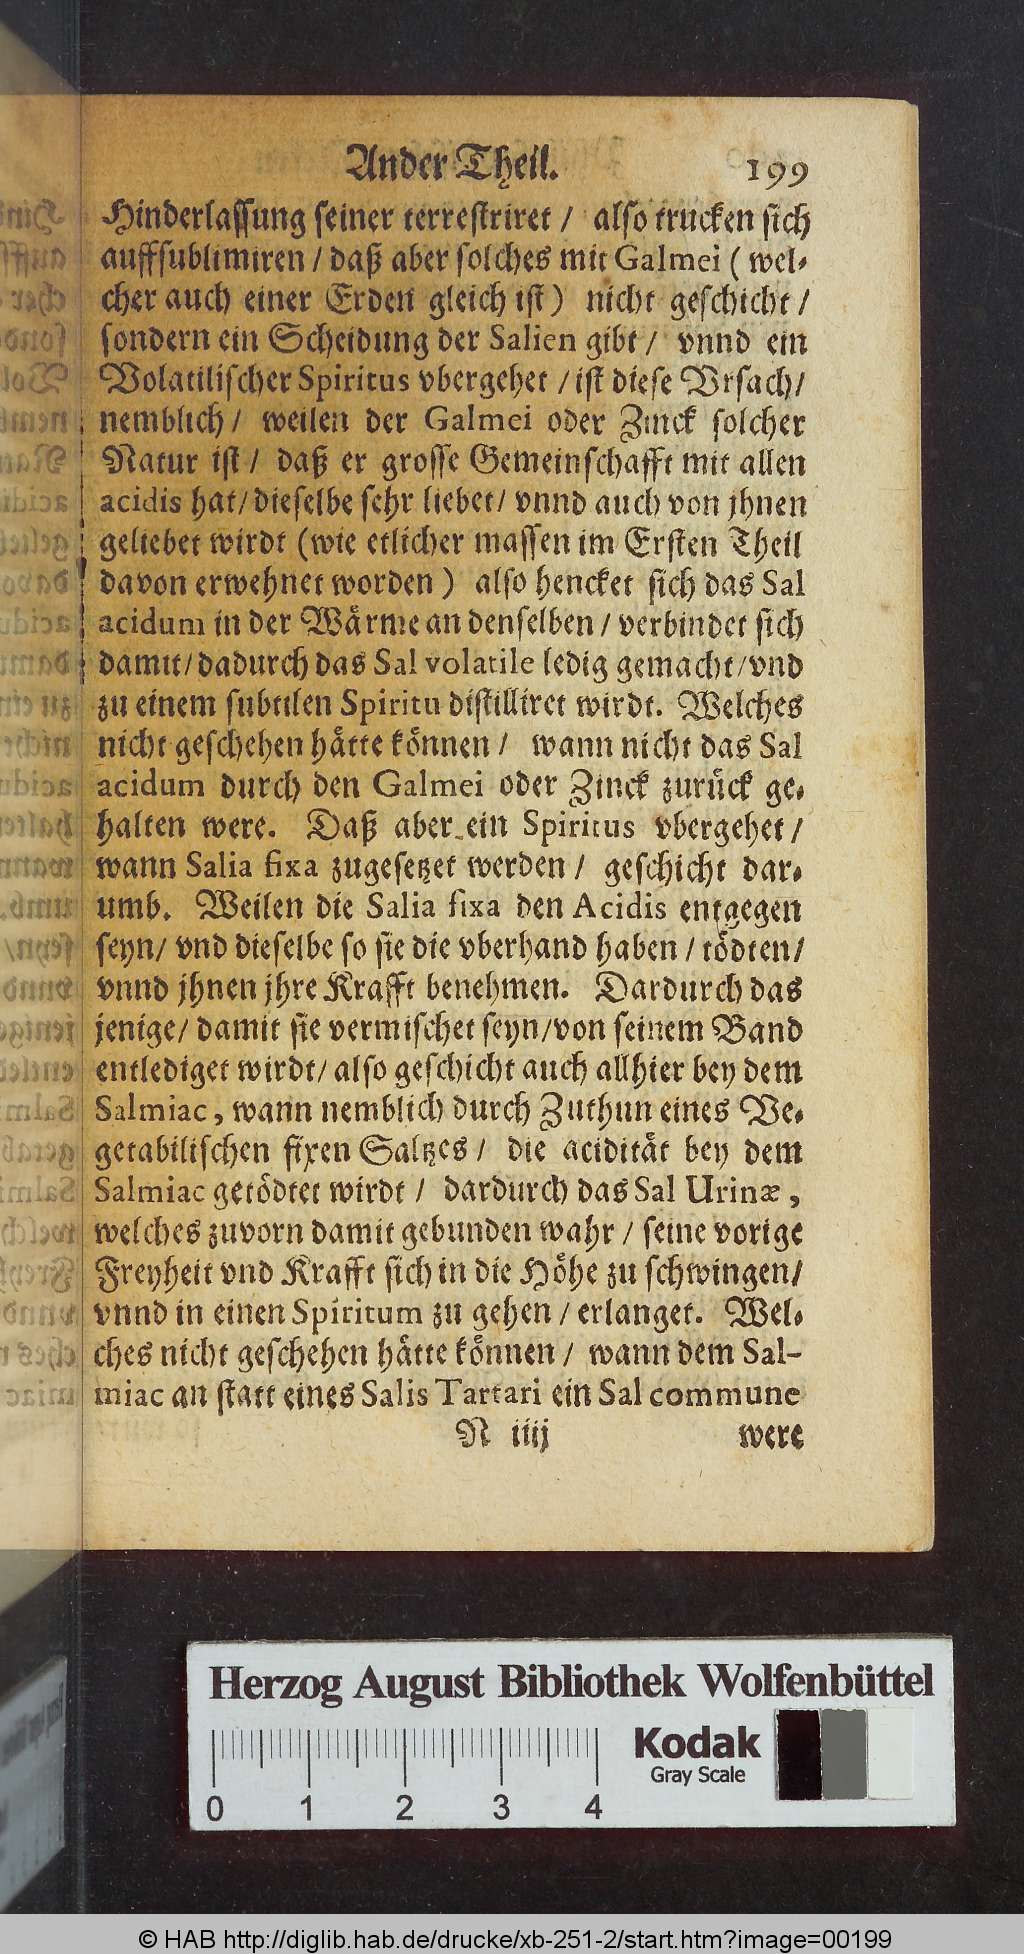 Ander Theil. 199
Hinderlassung seiner terrestriret / also trucken sich
auffsublimiren / daß aber solches mit Galmei ( wel-
cher auch einer Erden gleich ist ) nicht geschicht /
sondern ein Scheidung der Salien gibt / vnnd ein
Volatilischer Spiritus vbergehet / ist diese Vrsach /
nemblich / weilen der Galmei oder Zinck solcher
Natur ist / daß er grosse Gemeinschafft mit allen
acidis hat / dieselbe sehr liebet / vnnd auch von jhnen
geliebet wirdt (wie etlicher massen im Ersten Theil
davon erwehnet worden ) also hencket sich das Sal
acidum in der Wärme an denselben / verbindet sich
damit / dadurch das Sal volatile ledig gemacht / vnd
zu einem subtilen Spiritu distilliret wirdt. Welches
nicht geschehen hätte können / wann nicht das Sal
acidum durch den Galmei oder Zinck zurück ge-
halten were. Daß aber ein Spiritus vbergehet /
wann Salia fixa zugesetzet werden / geschicht dar-
umb. Weilen die Salia fixa den Acidis entgegen
seyn / vnd dieselbe so sie die vberhand haben / tödten /
vnnd jhnen jhre Krafft benehmen. Dardurch das
jenige / damit sie vermischet seyn / von seinem Band
entlediget wirdt / also geschicht auch allhier bey dem
Salmiac, wann nemblich durch Zuthun eines Ve-
getabilischen fixen Saltzes / die acidität bey dem
Salmiac getödtet wirdt / dardurch das Sal Urinæ,
welches zuvorn damit gebunden wahr / seine vorige
Freyheit vnd Krafft sich in die Höhe zu schwingen /
vnnd in einen Spiritum zu gehen / erlanget. Wel-
ches nicht geschehen hätte können / wann dem Sal-
miac an statt eines Salis Tartari ein Sal commune
N iiij were
Herzog August Bibliothek Wolfenbüttel
Kodak
Gray Scale
0 1 2 3 4
© HAB http://diglib.hab.de/drucke/xb-251-2/start.htm?image=00199